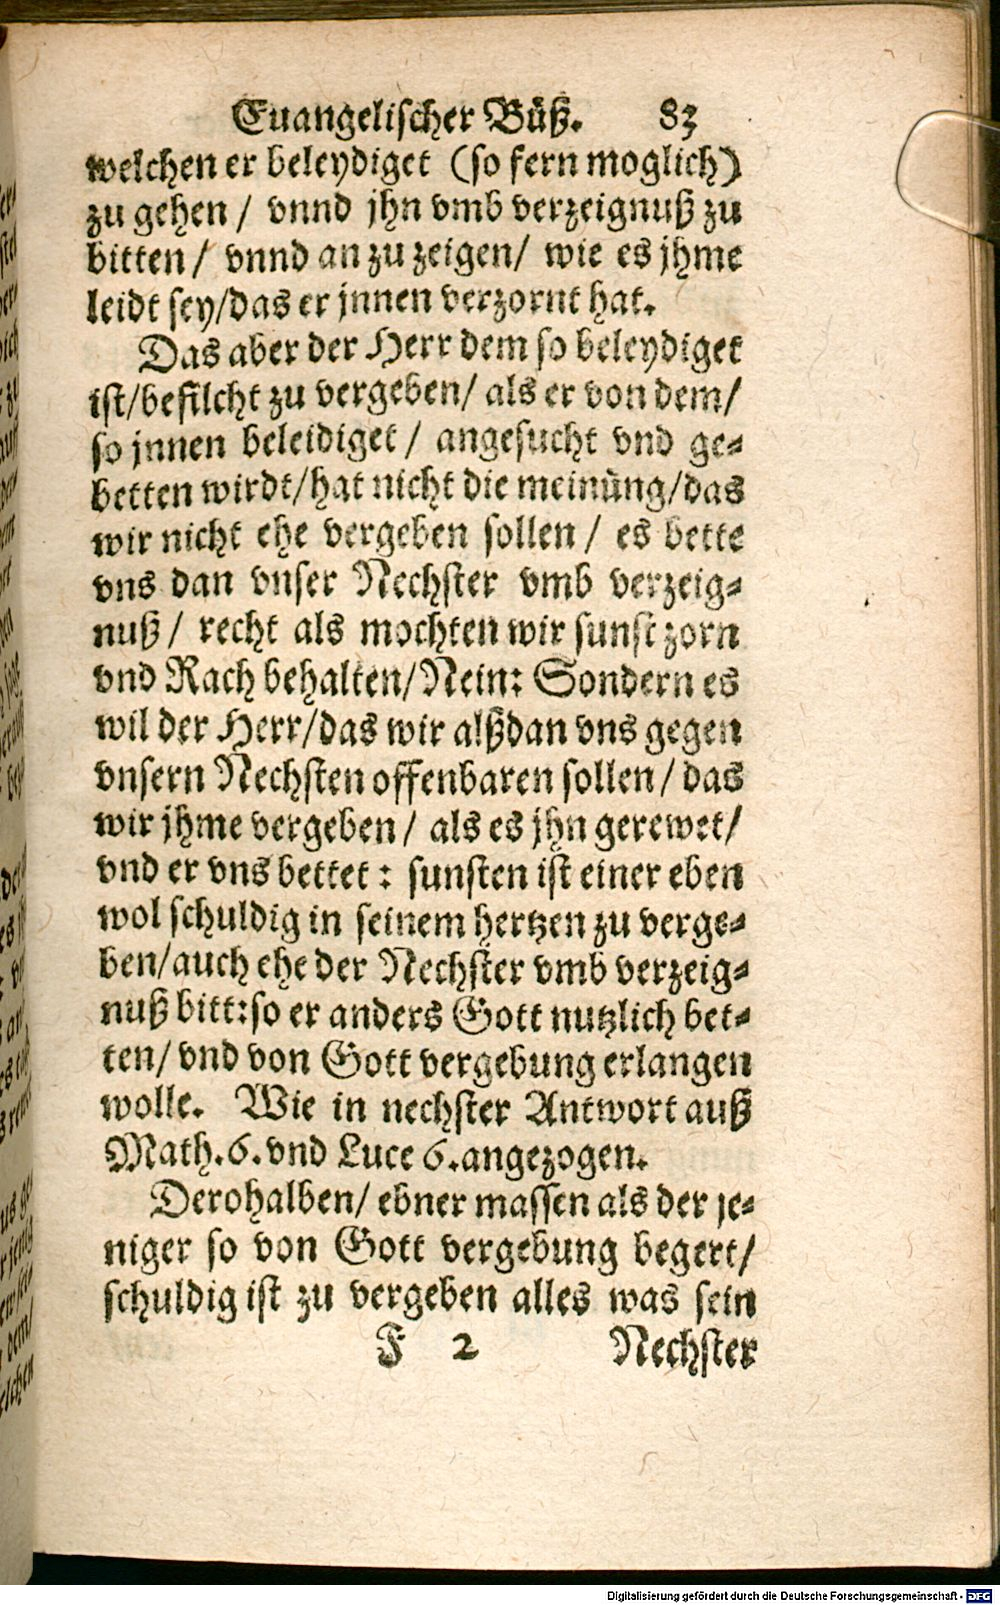 Euangelischer Büß. 83
welchen er beleydiget (so fern moglich)
zu gehen / vnnd jhn vmb verzeignuß zu
bitten / vnnd an zu zeigen / wie es jhme
leidt sey/das er jnnen verzornt hat.
Das aber der Herr dem so beleydiget
ist/befilcht zu vergeben / als er von dem /
so jnnen beleidiget / angesucht vnd ge-
betten wirdt/hat nicht die meinûng/das
wir nicht ehe vergeben sollen / es bette
vns dan vnser Nechster vmb verzeig-
nuß / recht als mochten wir sunst zorn
vnd Rach behalten/Nein: Sondern es
wil der Herr/das wir alßdan vns gegen
vnsern Nechsten offenbaren sollen / das
wir jhme vergeben / als es jhn gerewet /
vnd er vns bettet : sunsten ist einer eben
wol schuldig in seinem hertzen zu verge-
ben/auch ehe der Nechster vmb verzeig-
nuß bitt:so er anders Gott nutzlich bet-
ten/ vnd von Gott vergebung erlangen
wolle. Wie in nechster Antwort auß
Math.6.vnd Luce 6.angezogen.
Derohalben/ ebner massen als der je-
niger so von Gott vergebung begert /
schuldig ist zu vergeben alles was sein
F 2 Nechster
Digitalisierung gefördert durch die Deutsche Forschungsgemeinschaft - DFG